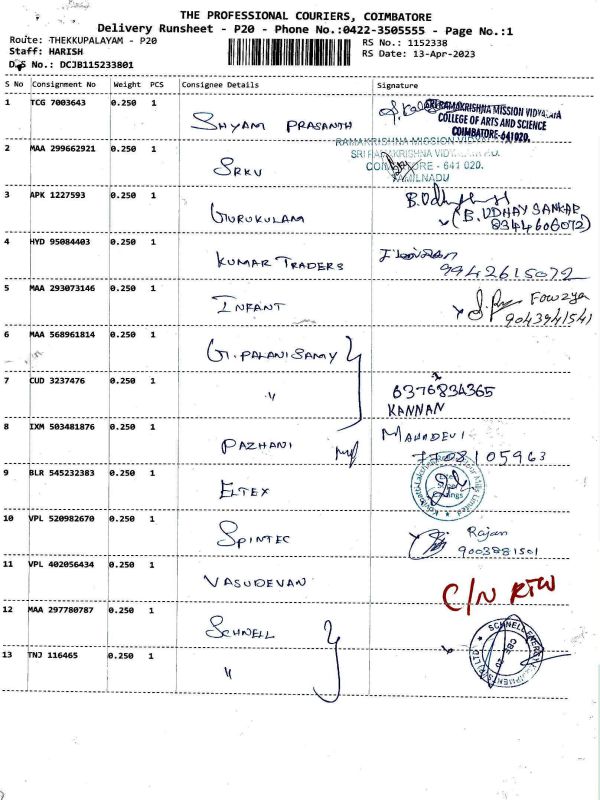 THE PROFESSIONAL COURIERS, COIMBATORE
Delivery Runsheet - P20 - Phone No.:0422-3505555 - Page No.:1
Route: THEKKUPALAYAM - P20
Staff: HARISH
RS No.: 1152338
RS Date: 13-Apr-2023
DRS No.: DCJB115233801
S No Consignment No Weight PCS Consignee Details Signature
1 TCG 7003643 0.250 1 SHYAM PRASANTH
SRI RAMAKRISHNA MISSION VIDYALAYA
COLLEGE OF ARTS AND SCIENCE
COIMBATORE-641020.
2 MAA 299662921 0.250 1 SRKV
RAMAKRISHNA MISSION
SRI RAMAKRISHNA VIDYALAYA P.O.
COIMBATORE - 641 020.
TAMILNADU
3 APK 1227593 0.250 1 GURUKULAM
(B. UDHAY SANKAR
8344606072)
4 HYD 95084403 0.250 1 KUMAR TRADERS
9942615072
5 MAA 293073146 0.250 1 INFANT
Fowzya
9043941541
6 MAA 568961814 0.250 1 G. PALANISAMY
7 CUD 3237476 0.250 1 "
6376834365
KANNAN
8 IXM 503481876 0.250 1 PAZHANI
MAHADEVI
7708105963
9 BLR 545232383 0.250 1 ELTEX
10 VPL 520982670 0.250 1 SPINTEC
Rajan
9003881501
11 VPL 402056434 0.250 1 VASUDEVAN
C/N RTN
12 MAA 297780787 0.250 1 SCHNELL
13 TNJ 116465 0.250 1 "